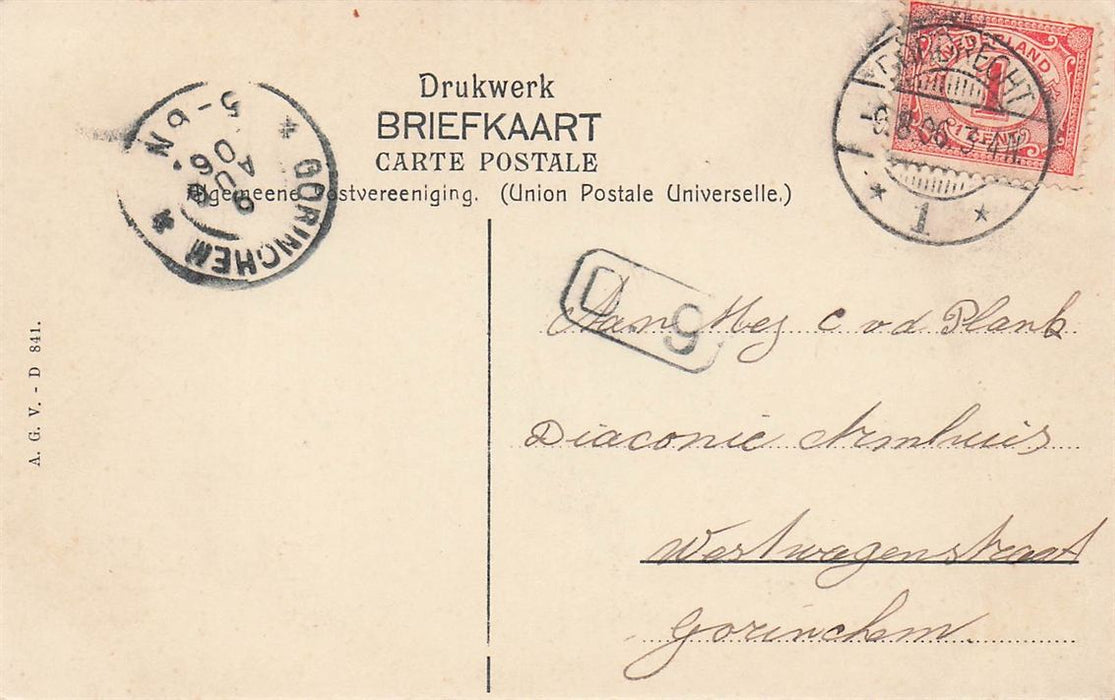 Drukwerk
BRIEFKAART
CARTE POSTALE
Algemeene Postvereeniging. (Union Postale Universelle.)
NEDERLAND
1
CENT
DORDRECHT
9.8.06. 3-4N.
1
GORINCHEM
9
AUG
06
5-6 N.
D 9
Aan Mej C v d Plank
Diaconie Armhuis
Westwagenstraat
Gorinchem.
A. G. V. - D 841.